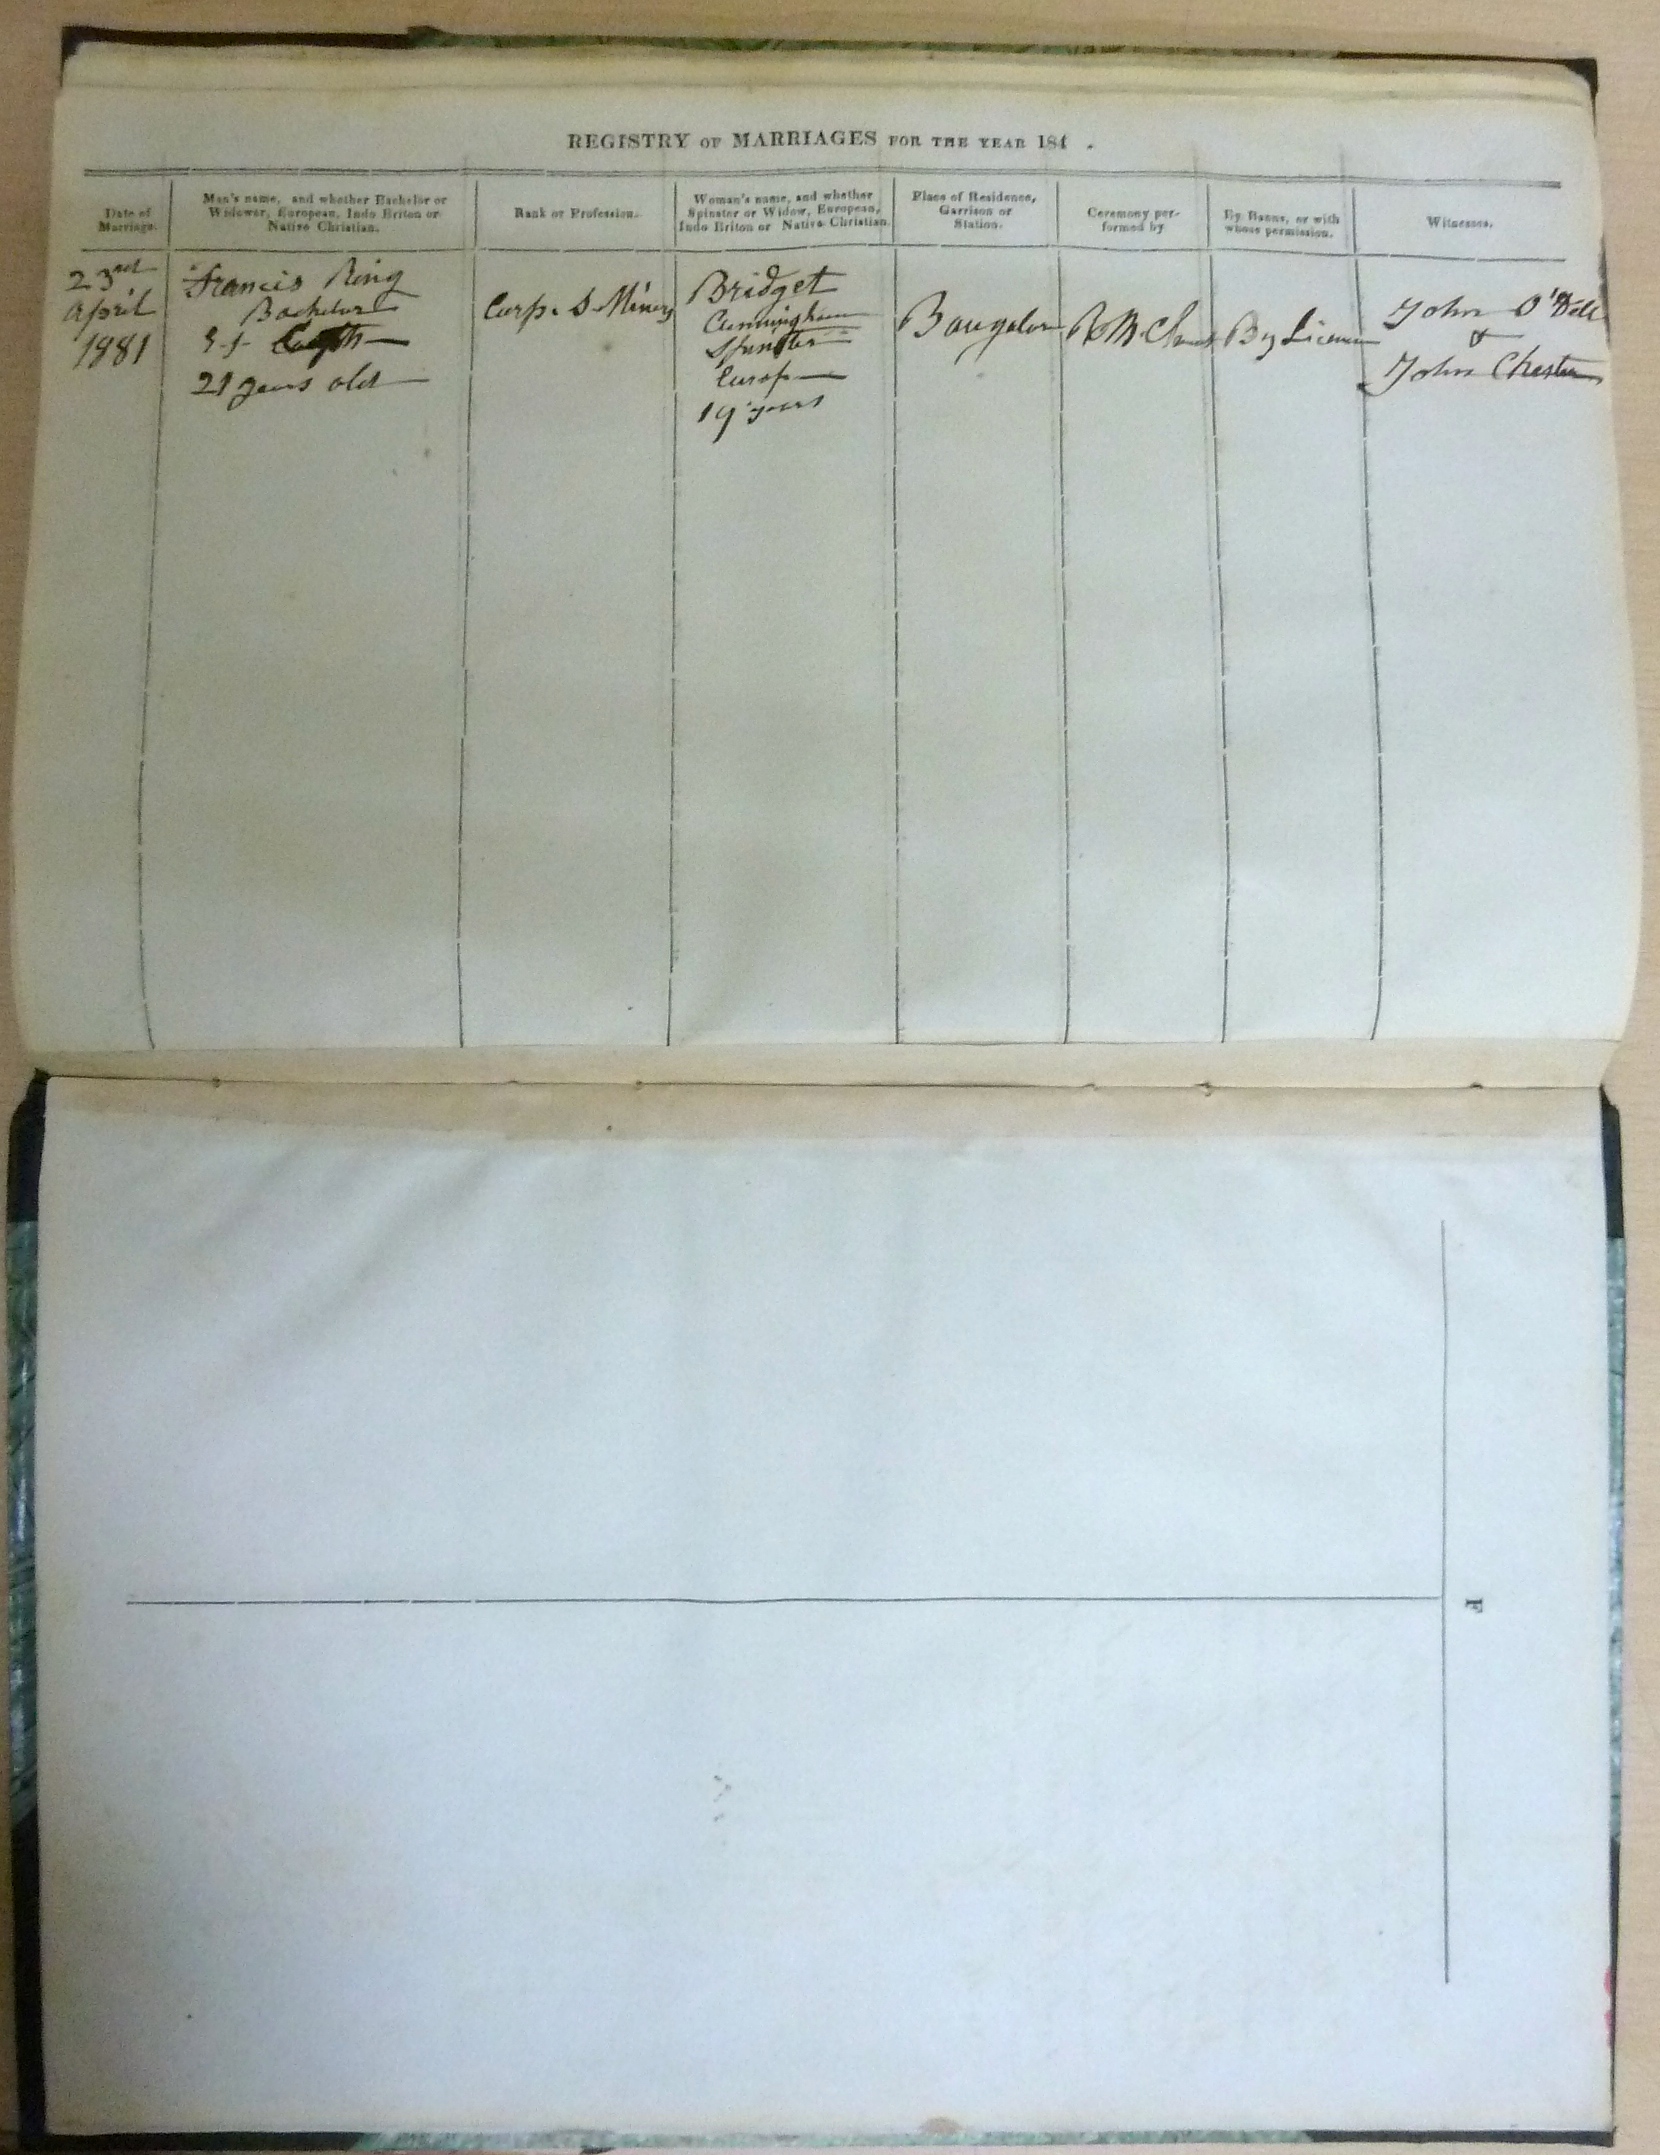 REGISTRY OF MARRIAGES FOR THE YEAR 184 .
Date of
Marriage.
Man's name, and whether Bachelor or
Widower, European, Indo Briton or
Native Christian.
Rank or Profession.
Woman's name, and whether
Spinster or Widow, European,
Indo Briton or Native Christian.
Place of Residence,
Garrison or
Station.
Ceremony per-
formed by
By Banns, or with
whose permission.
Witnesses.
23rd
April
1881
Francis Ring
Bachelor
21 years old
Corp. S. Miners
Bridget
Cunningham
Spinster
Europ
19 years
Bangalor
By
John
&
John Chester
F